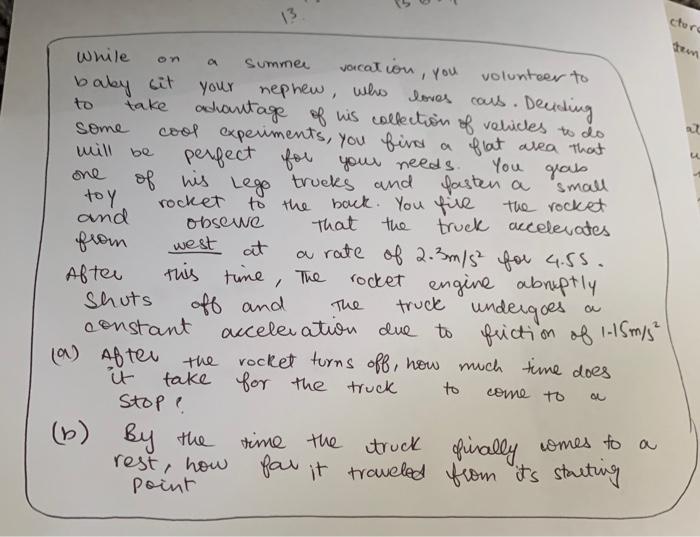 13
ctor
stem
while on a summer vacation, you volunteer to
baby sit your nephew, who loves cars. Deciding
to take advantage of his collection of vehicles to do
some cool experiments, you find a flat area that
will be perfect for your needs. You grab
one of his Lego trucks and fasten a small
toy rocket to the back. You fire the rocket
and observe that the truck accelerates
from west at a rate of 2.3m/s² for 4.5s.
After this time, The rocket engine abruptly
shuts off and The truck undergoes a
constant acceleration due to friction of 1.15m/s²
(a) After the rocket turns off, how much time does
it take for the truck to come to a
stop?
(b) By the time the truck finally comes to a
rest, how far it traveled from its starting
point